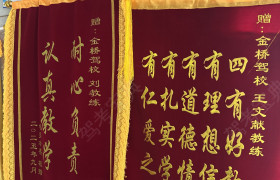 赠：金桥驾校 刘教练
耐心负责
认真教学
二〇二五年九月
赠：金桥驾校 王文献教练
四有好教
有理想信
有道德情
有扎实学
有仁爱之